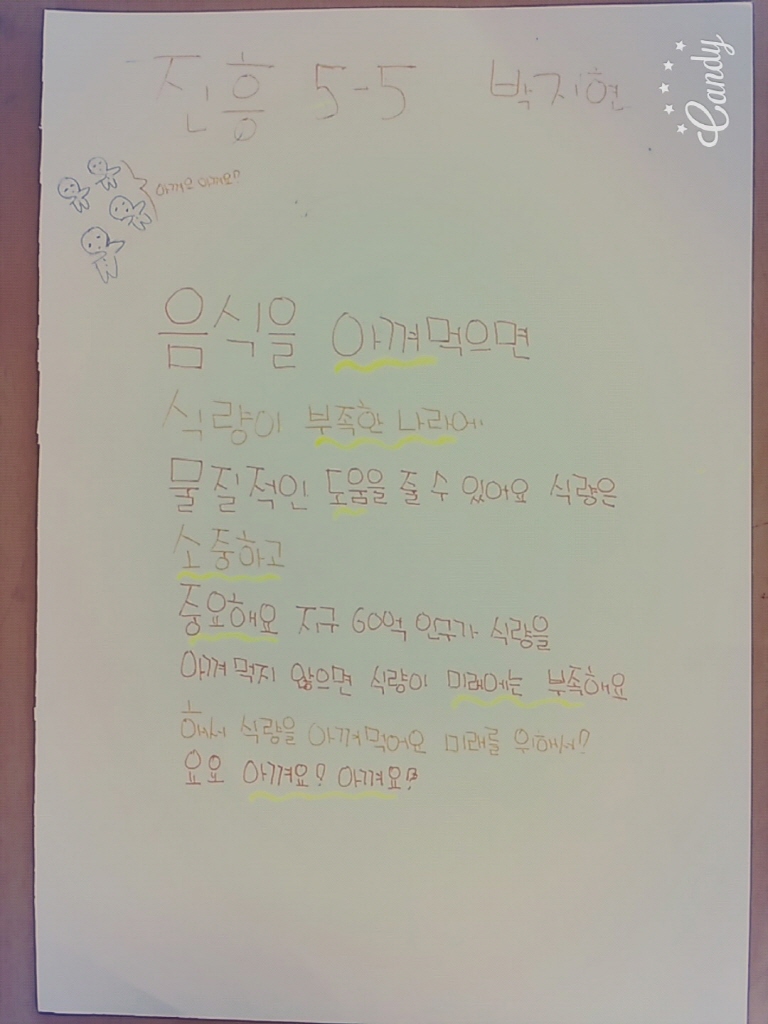 진흥 5-5 박지현
Candy
아껴요 아껴요?
음식을 아껴먹으면
식량이 부족한 나라에
물질적인 도움을 줄 수 있어요 식량은
소중하고
중요해요 지구 60억 인구가 식량을
아껴 먹지 않으면 식량이 미래에는 부족해요
해서 식량을 아껴먹어요 미래를 위해서?
요요 아껴요? 아껴요?